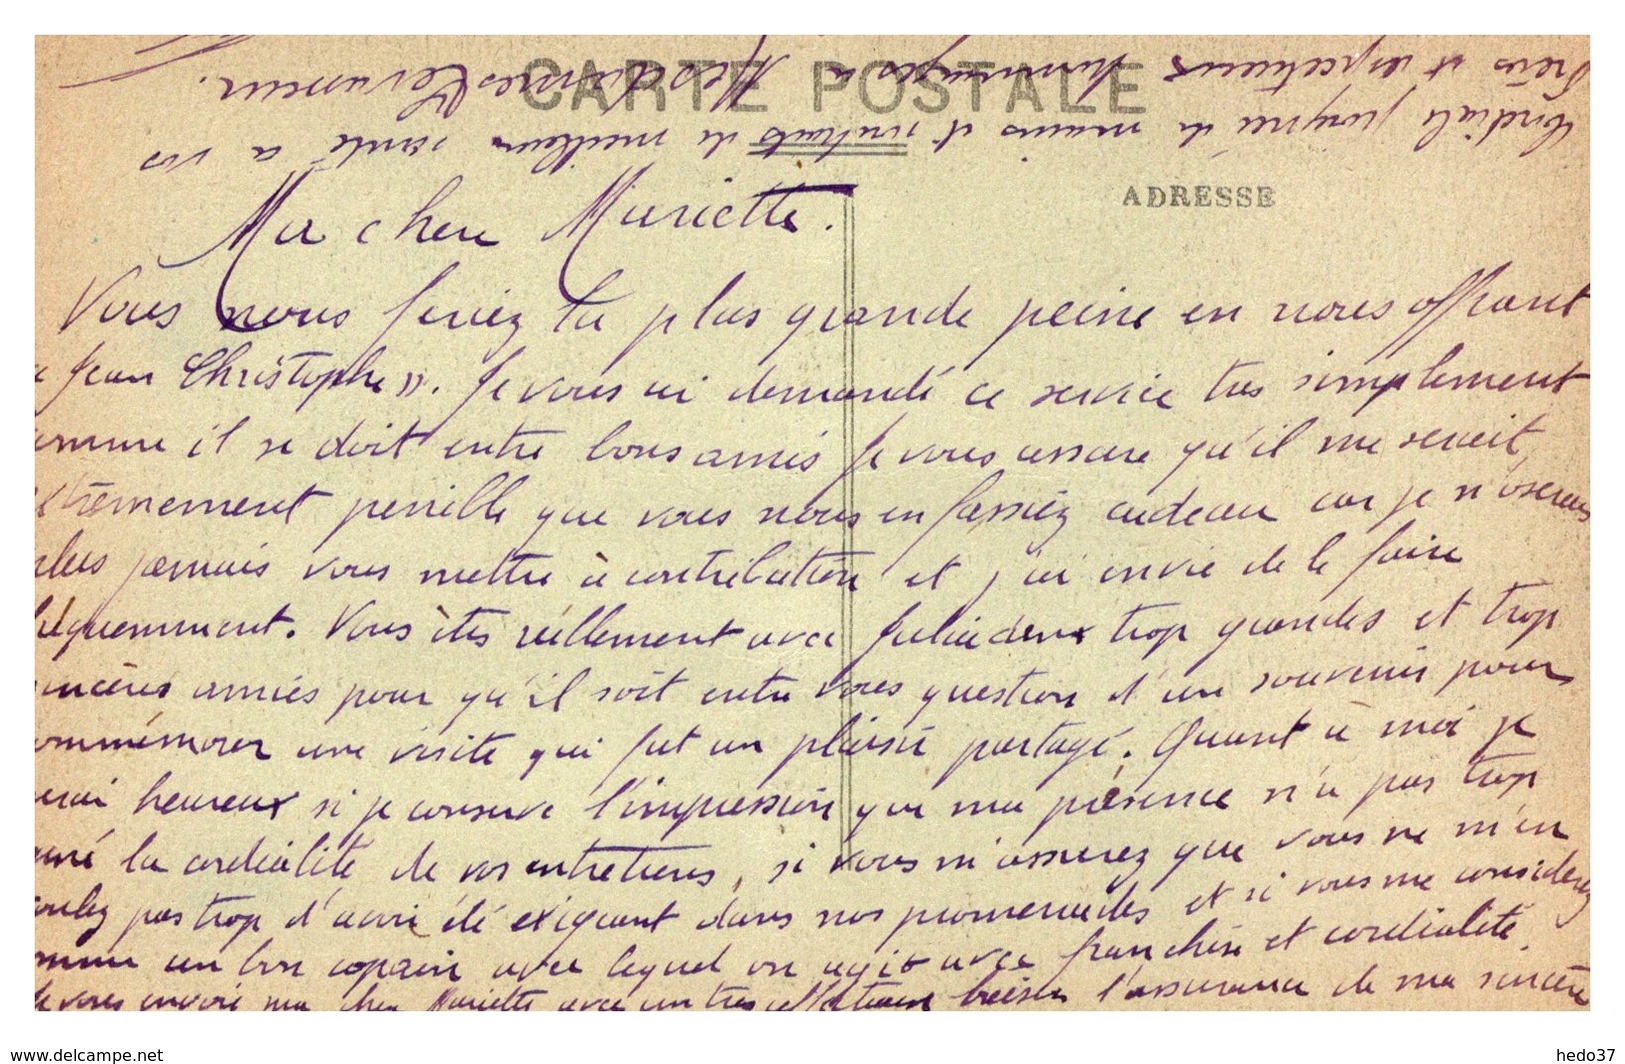 CARTE POSTALE
ADRESSE
Ma chere Mariette.
Vous nous feriez la plus grande peine en nous offrant
Jean Christophe ». Je vous ai demandé ce service très simplement
omme il se doit entre bons amis je vous assure qu'il me serait
xtrêmement pénible que vous nous en fassiez cadeau car je n'oserais
plus jamais vous mettre à contribution et j'ai envie de le faire
fréquemment. Vous êtes réellement avec Julia deux trop grandes et trop
sincères amies pour qu'il soit entre vous question d'un souvenir pour
ommémorer une visite qui fut un plaisir partagé. Quant à moi je
serai heureux si je conserve l'impression que ma présence n'a pas trop
gêné la cordialité de vos entretiens, si vous m'assurez que vous ne m'en
voulez pas trop d'avoir été exigeant dans nos promenades et si vous me considérez
omme un bon copain avec lequel on agit avec franchise et cordialité.
Je vous envoie ma chere Mariette avec un très affectueux baiser l'assurance de ma sincère
Cordiale poignée de mains et souhaits de meilleure santé à vos
et respectueux hommages à Mesdames Levasseur.
www.delcampe.net
hedo37